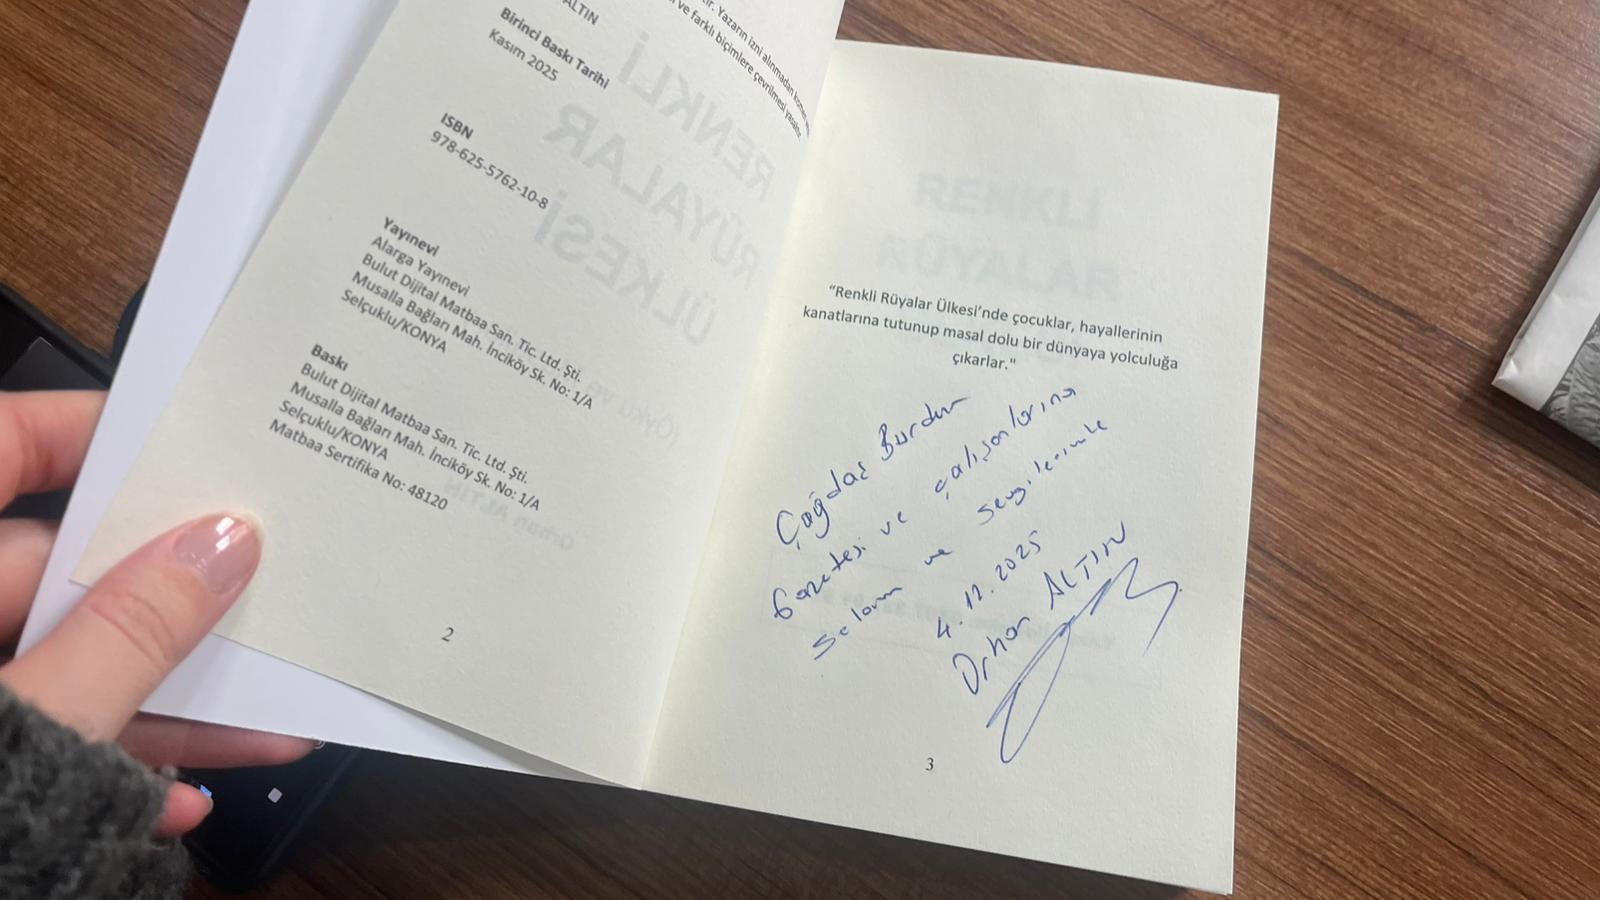 ır. Yazarın izni alınmadan kısmen
ve farklı biçimlere çevrilmesi yasaktır.
ALTIN
Birinci Baskı Tarihi
Kasım 2025
ISBN
978-625-5762-10-8
Yayınevi
Alarga Yayınevi
Bulut Dijital Matbaa San. Tic. Ltd. Şti.
Musalla Bağları Mah. İnciköy Sk. No: 1/A
Selçuklu/KONYA
Baskı
Bulut Dijital Matbaa San. Tic. Ltd. Şti.
Musalla Bağları Mah. İnciköy Sk. No: 1/A
Selçuklu/KONYA
Matbaa Sertifika No: 48120
2
RENKLİ
RÜYALAR
"Renkli Rüyalar Ülkesi'nde çocuklar, hayallerinin
kanatlarına tutunup masal dolu bir dünyaya yolculuğa
çıkarlar."
Çağdaş Burdur
Gazetesi ve çalışanlarına
selam ve sevgilerimle
4.12.2025
Orhan ALTIN
3